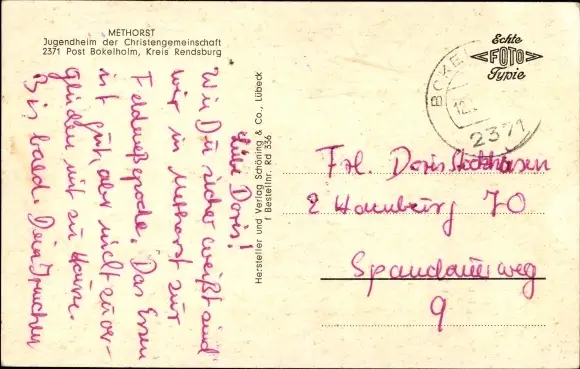 METHORST
Jugendheim der Christengemeinschaft
2371 Post Bokelholm, Kreis Rendsburg
Echte
FOTO
Typie
BOKE
12.
2371
Liebe Doris!
Wie Du sicher weißt sind
wir in Methorst zur
Feldmeßepoche. Das Essen
ist gut, aber nicht zu ver-
gleichen mit zu Hause.
Bis bald. Dein
Hersteller und Verlag Schöning & Co., Lübeck
f Bestellnr. Rd 336
Frl. Doris
2 Hamburg 70
Spandauerweg
9